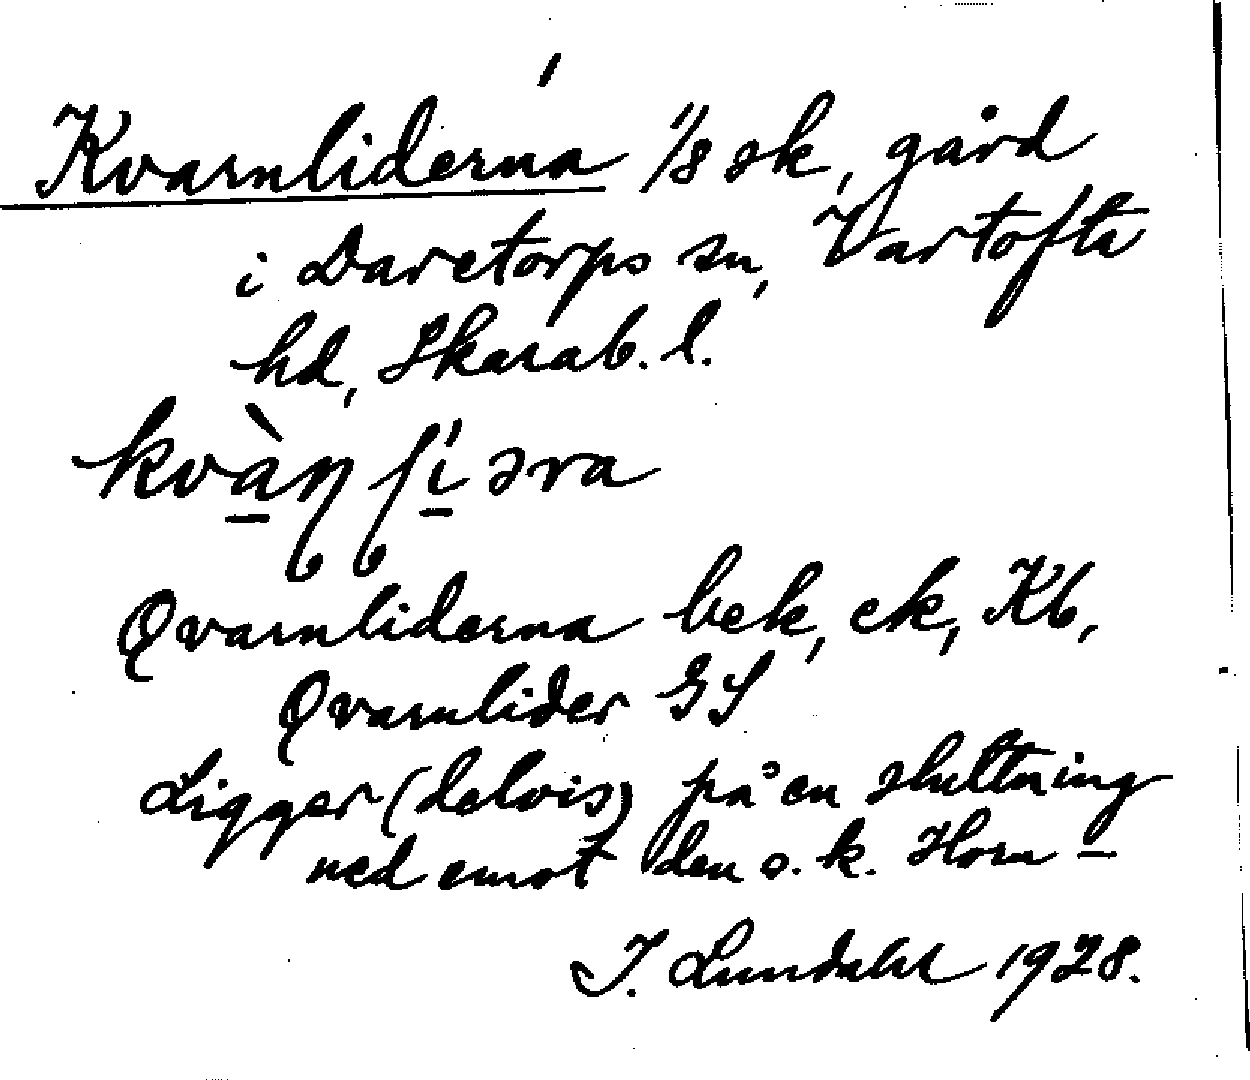 Kvarnliderna 1/8 sk, gård
i Daretorps sn, Vartofta
hd, Skarab. l.
kvàɳ ſíəra
Qvarnliderna bek, ek, Kb,
Qvarnlider GS
Ligger (delvis) på en sluttning
ned emot den s. k. Horn –
I. Lundahl 1928.